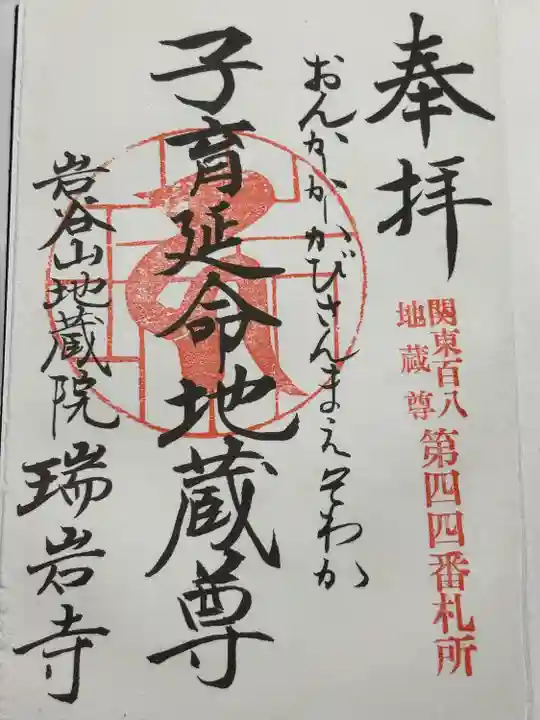 奉拝
関東百八
地蔵尊
第四四番札所
おんかかかびさんまえそわか
子育延命地蔵尊
岩谷山地蔵院瑞岩寺